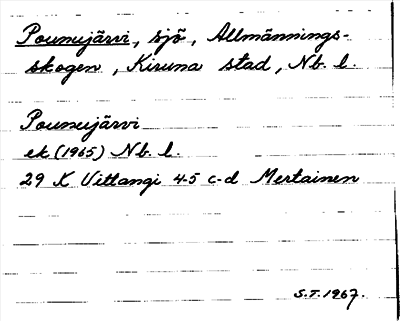 Pounujärvi, sjö, Allmännings-
skogen, Kiruna stad, Nb. l.
Pounujärvi
ek (1965) Nb. l.
29 K Vittangi 4-5 c-d Mertainen
S.T. 1967.